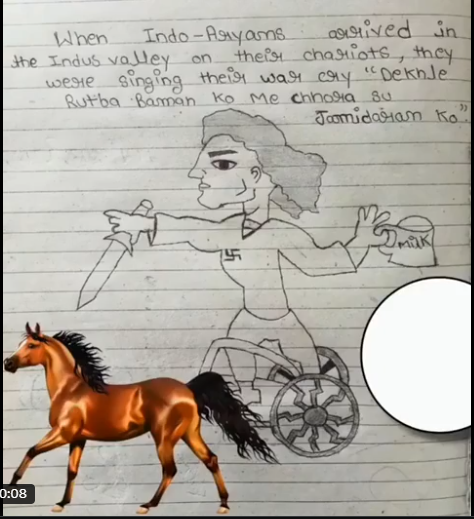 When Indo-Aryans arrived in
the Indus valley on their chariots, they
were singing their war cry "Dekhle
Rutba Barman Ko Me chhora su
Jamidaran Ko".
milk
0:08